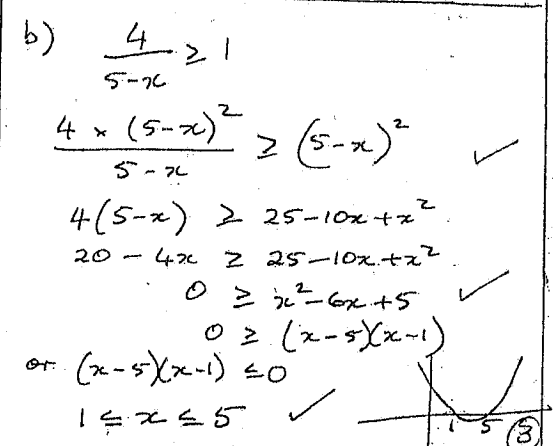 b) 4/(5-x) ≥ 1
(4 × (5-x)²)/(5-x) ≥ (5-x)² ✓
4(5-x) ≥ 25-10x+x²
20-4x ≥ 25-10x+x²
0 ≥ x²-6x+5 ✓
0 ≥ (x-5)(x-1)
or (x-5)(x-1) ≤ 0
1 ≤ x ≤ 5 ✓
1 5
3